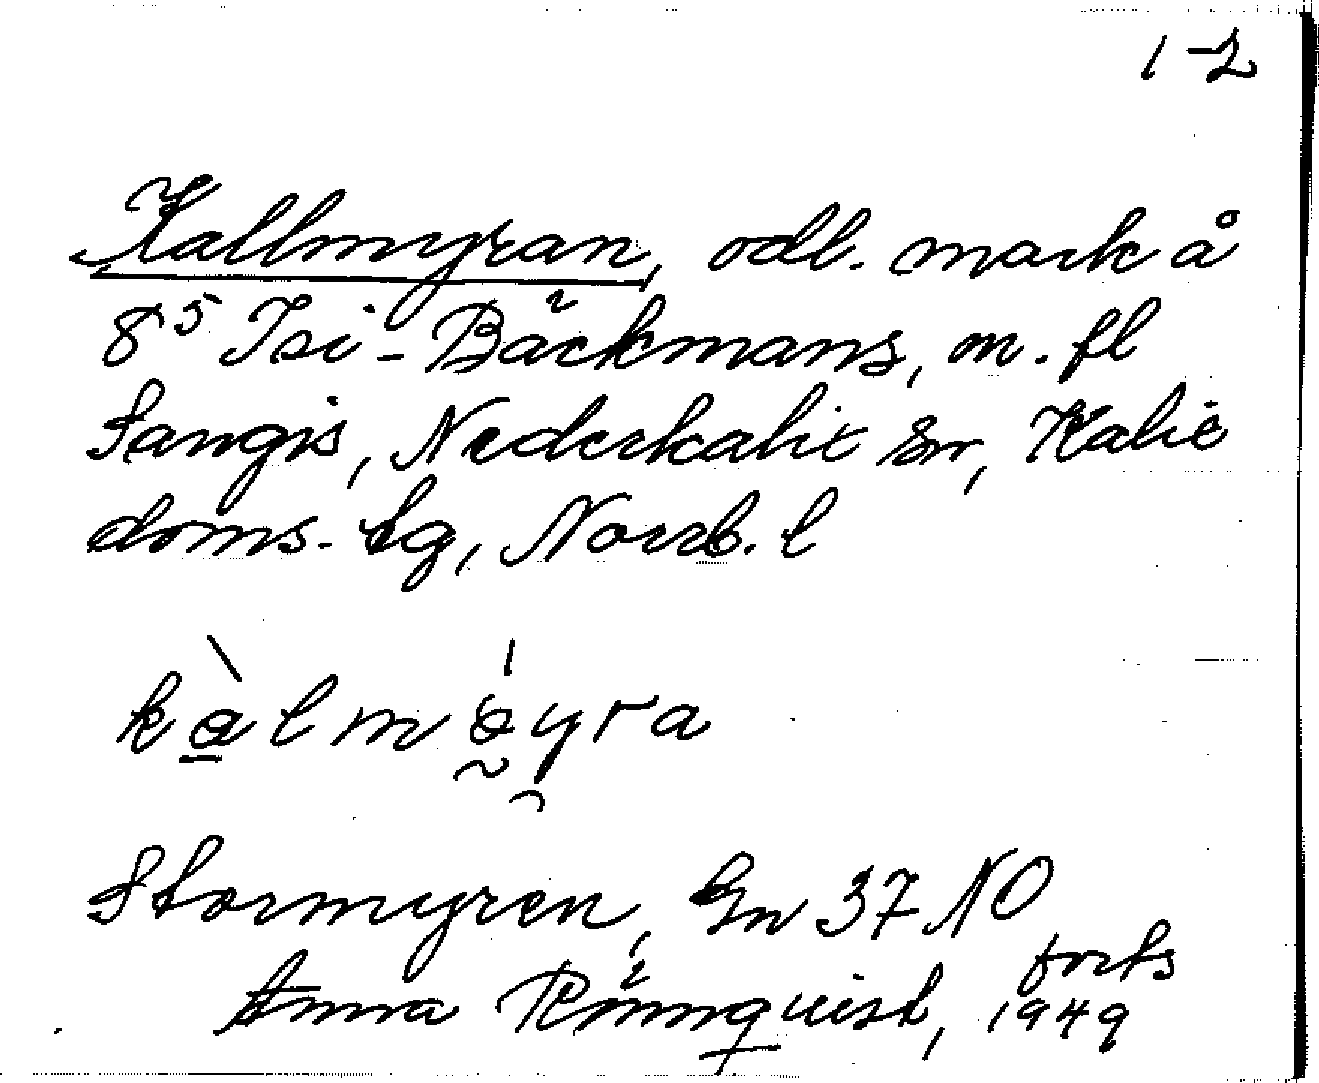 1-2
Kallmyran, odl. mark å
8⁵ Isi-Bäckmans, m. fl
Sangis, Nederkalix sn, Kalix
doms. lg, Norrb. l
Stormyren, Gn 37 NO
forts
Anna Rönnquist, 1949